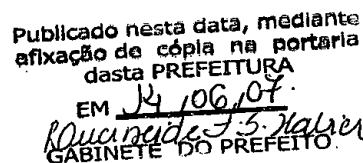 Publicado nesta data, mediante
afixação de cópia na portaria
dasta PREFEITURA
EM 14/06/07.
GABINETE DO PREFEITO